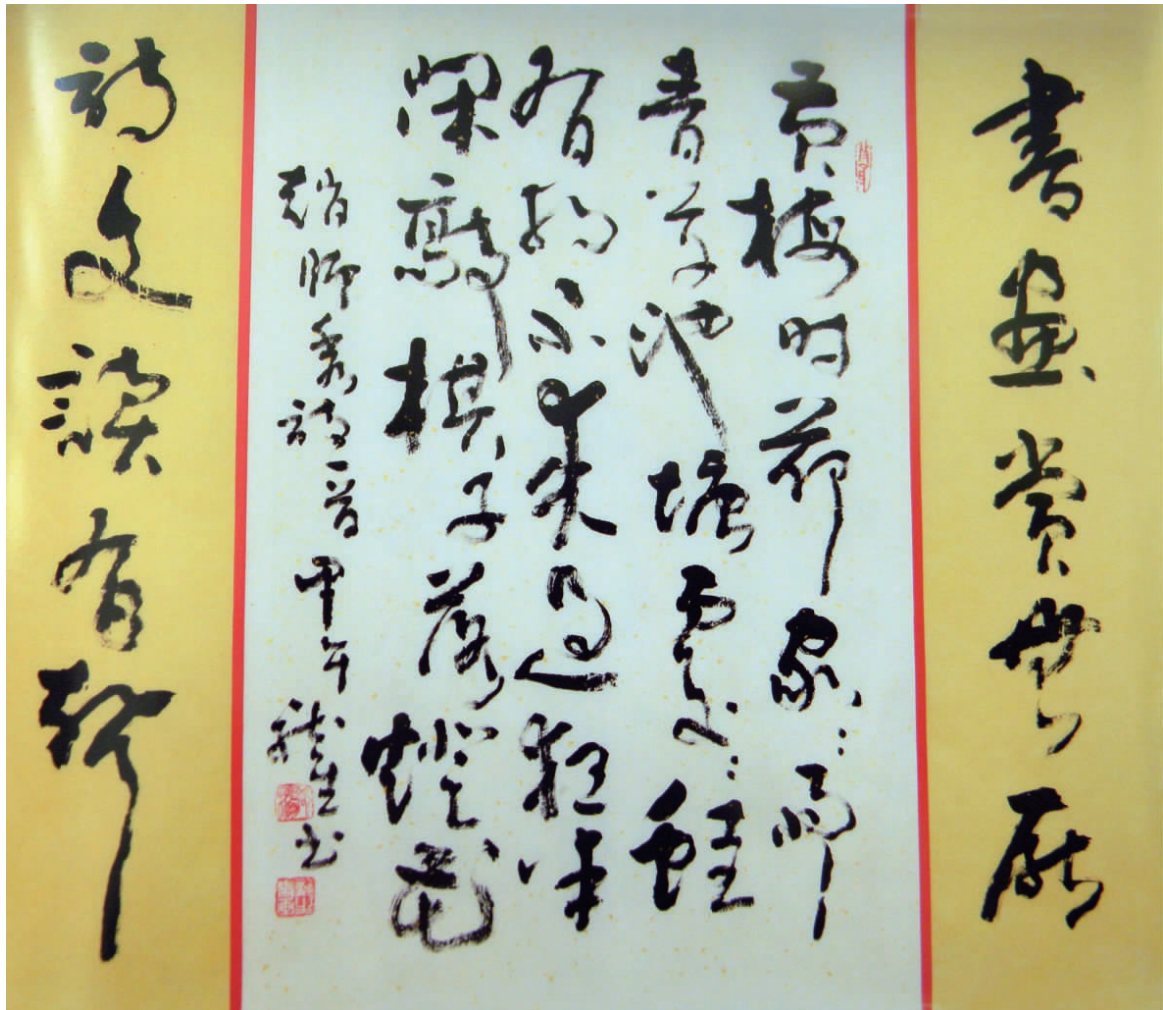 書畫賞無厭
黄梅時節家〻雨
青草池塘處〻蛙
有約不来過夜半
閑敲棋子落燈花
趙師秀詩一首 甲午 龍生书
詩文讀有聲